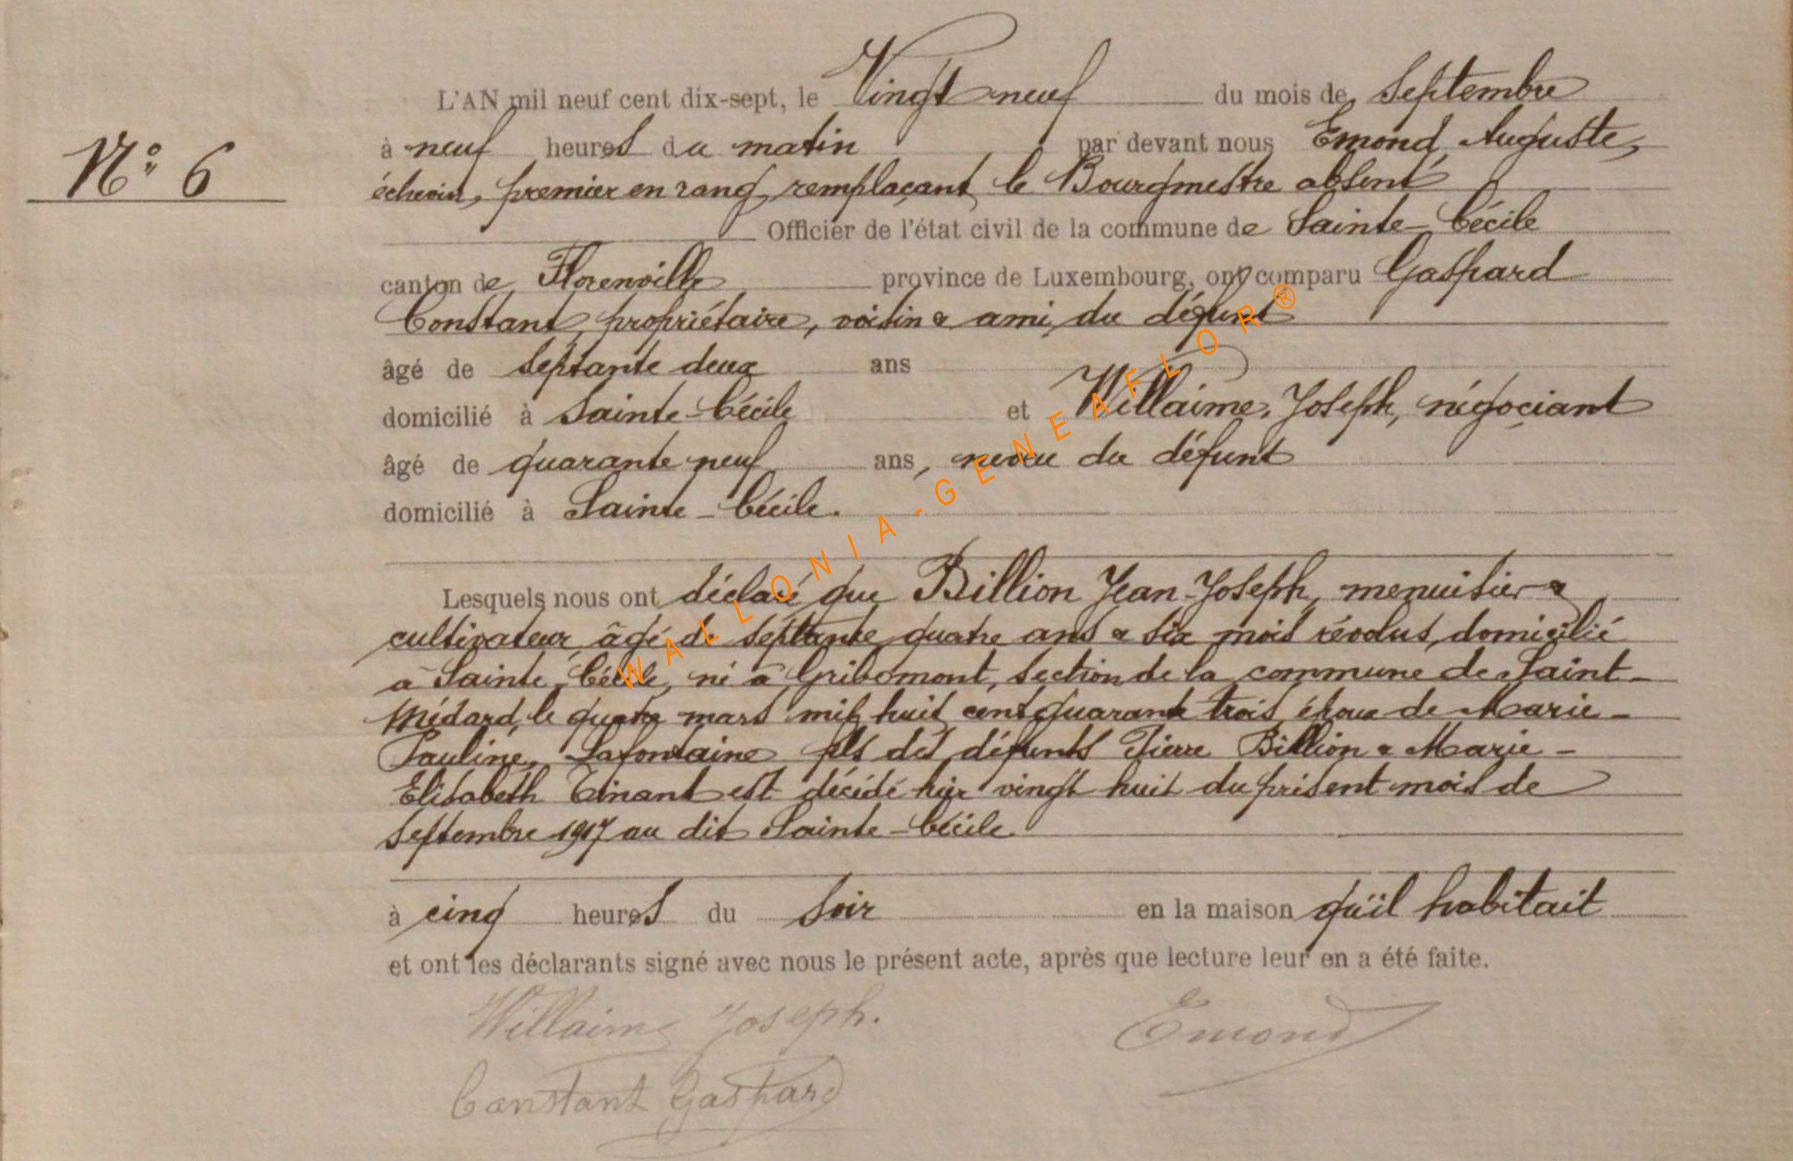 L'AN mil neuf cent dix-sept, le Vingt neuf du mois de Septembre
N° 6
à neuf heures du matin par devant nous Emond Auguste,
échevin, premier en rang, remplaçant le Bourgmestre absent
Officier de l'état civil de la commune de Sainte-Cécile
canton de Florenville province de Luxembourg, ont comparu Gaspard
Constant, propriétaire, voisin & ami du défunt
âgé de septante deux ans
domicilié à Sainte-Cécile et Willaime, Joseph, négociant
âgé de quarante neuf ans, neveu du défunt
domicilié à Sainte-Cécile.
Lesquels nous ont déclaré que Billion Jean-Joseph, menuisier &
cultivateur, âgé de septante quatre ans & six mois révolus, domicilié
à Sainte-Cécile, né à Gribomont, section de la commune de Saint-
Médard, le quatre mars mil huit cent quarante trois, époux de Marie-
Pauline, Lafontaine fils des défunts Pierre Billion & Marie-
Elisabeth Tinant est décédé hier vingt huit du présent mois de
Septembre 1917 au dit Sainte-Cécile
à cinq heures du soir en la maison qu'il habitait
et ont les déclarants signé avec nous le présent acte, après que lecture leur en a été faite.
Willaime Joseph. Emond
Constant Gaspard
WALLONIA-GENEAFLOR®